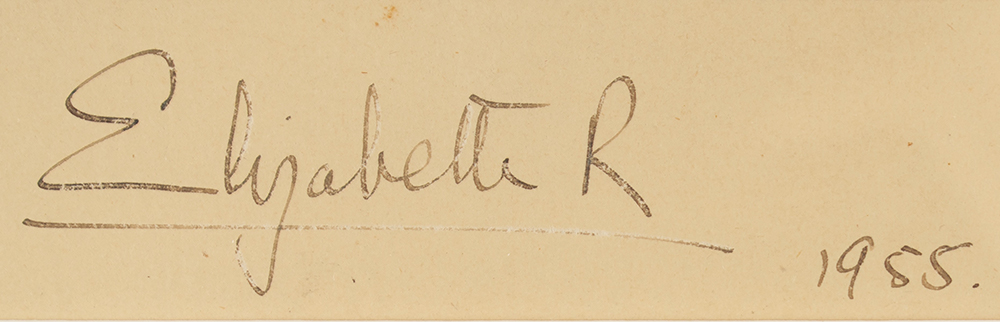 Elizabeth R
1955.